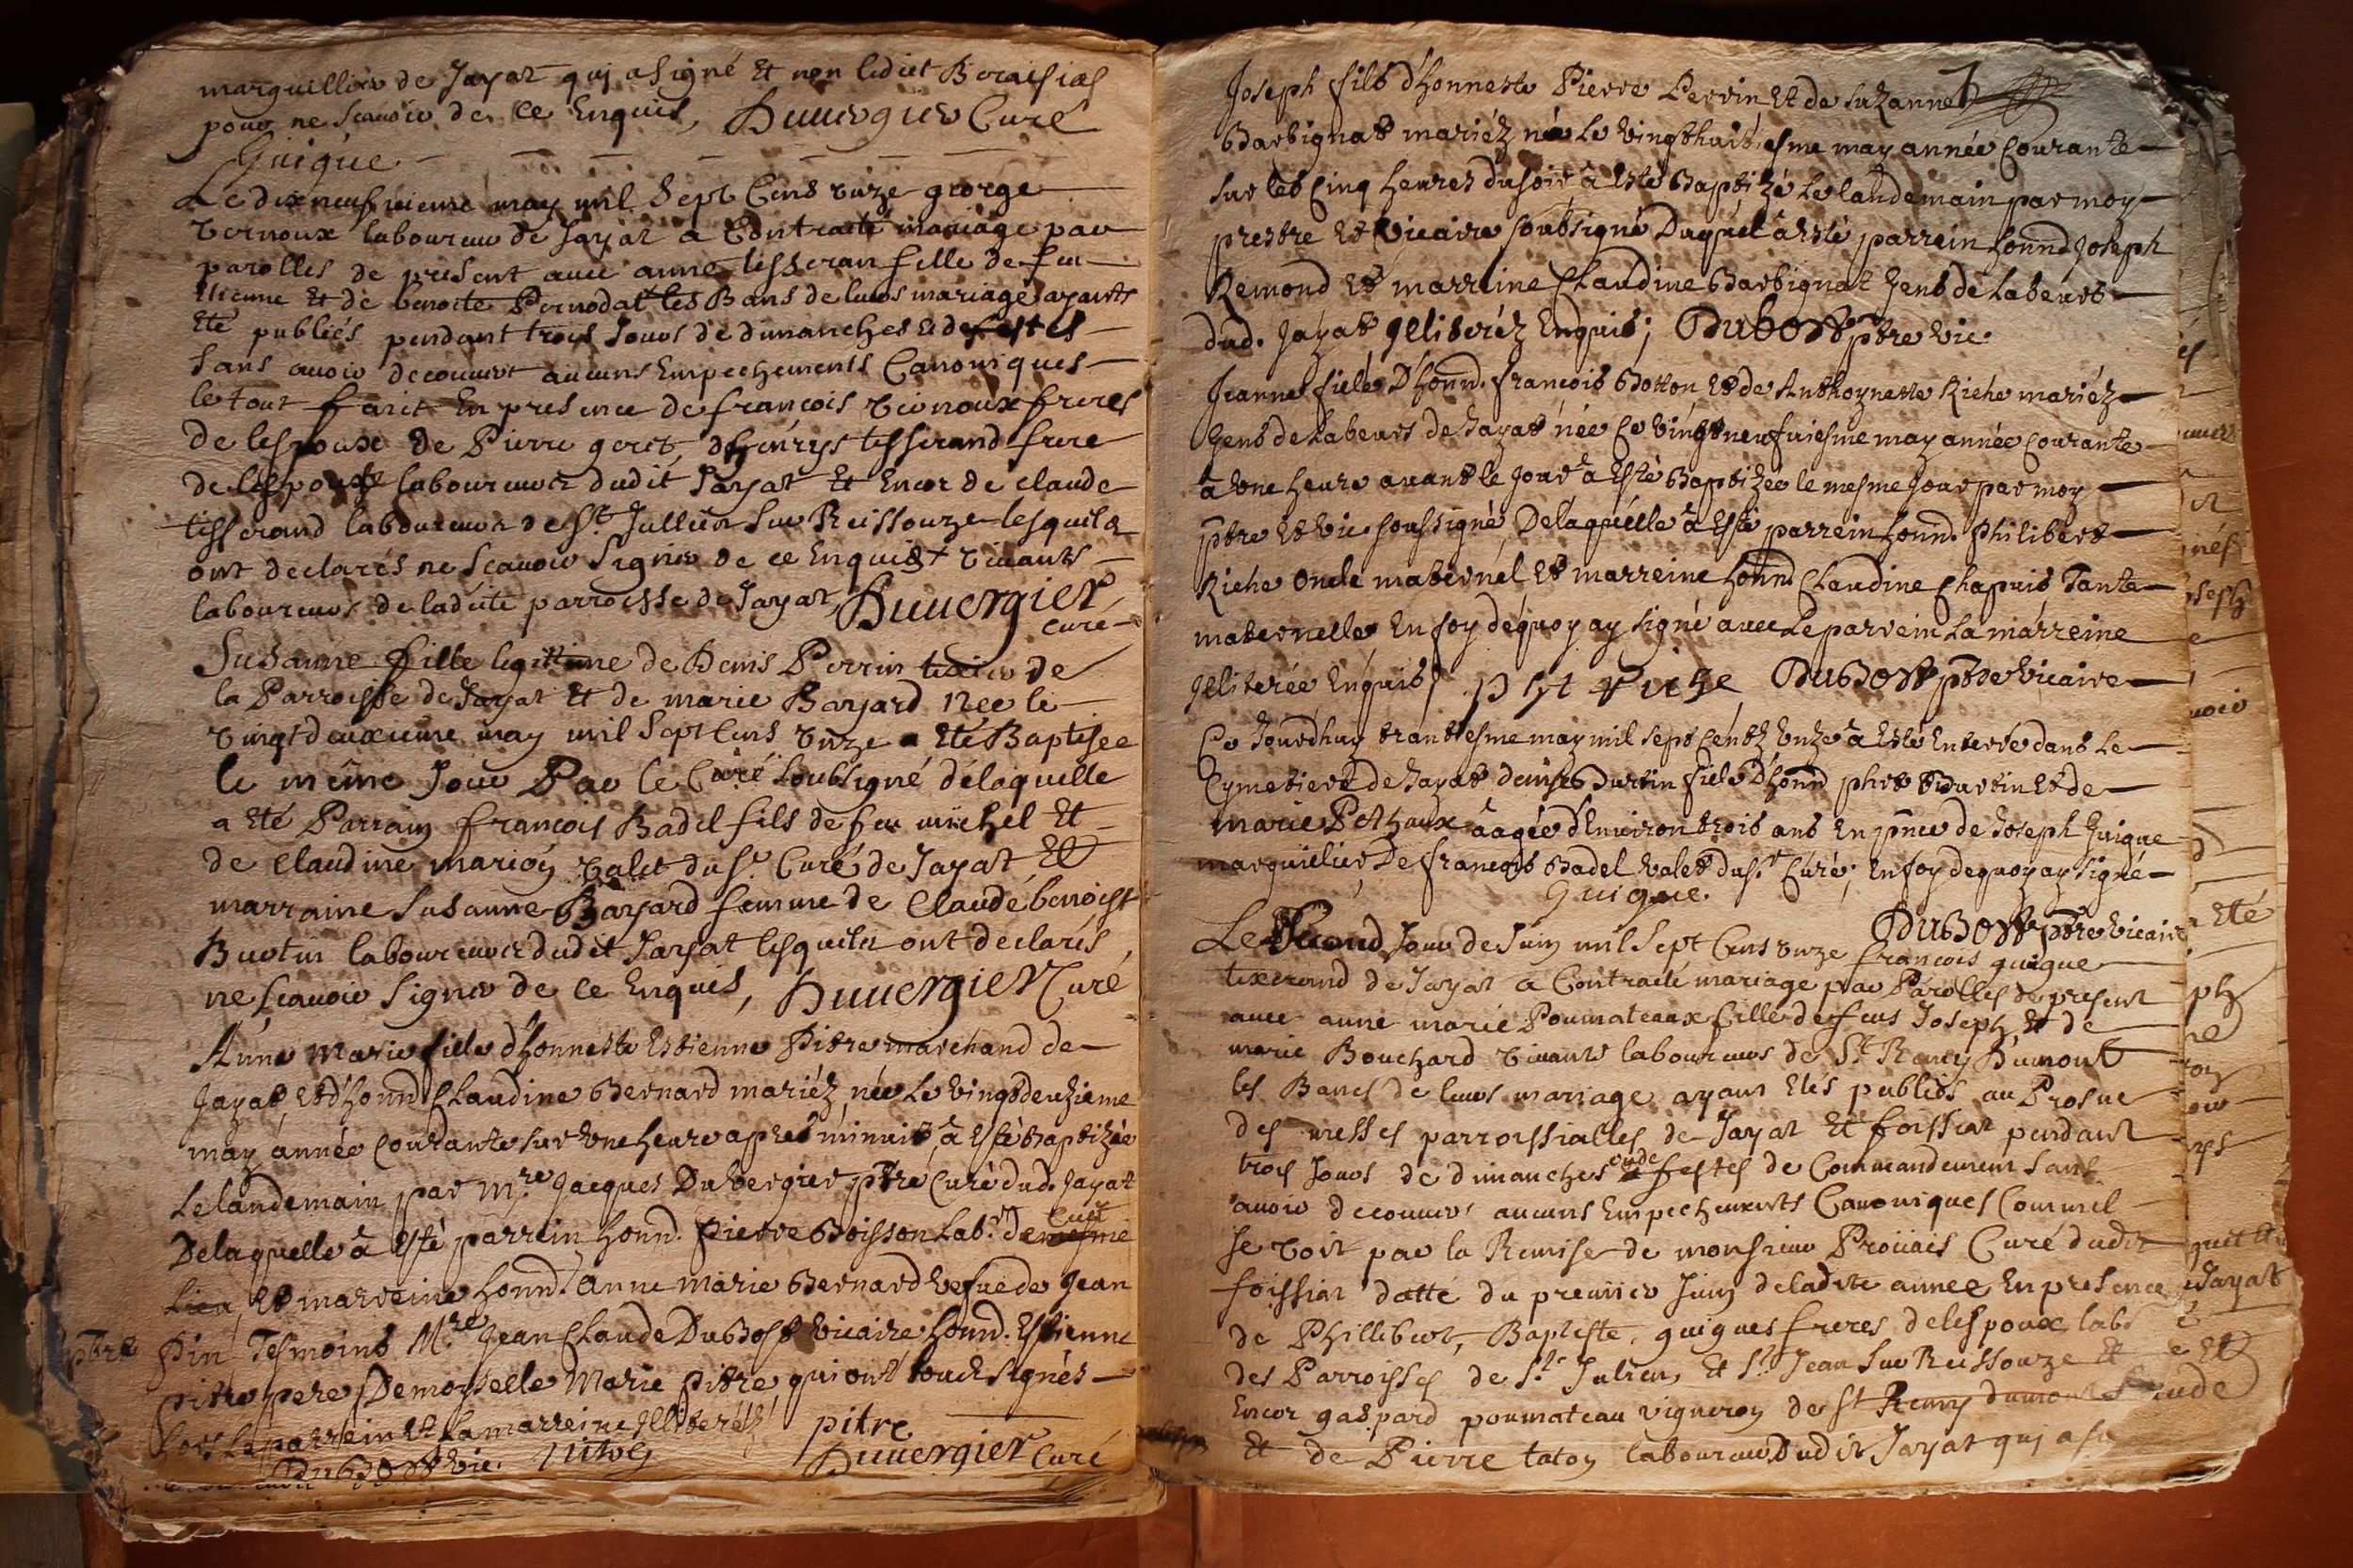 marguillier de Jayat qui a signé Et non ledict Beraisias
pour ne Scavoir de ce Enquis, Duuergier Curé
Guigue
Le dixneufvieme may mil Sept Cens vnze george
vernoux laboureur de Jayat a Contracté mariage par
parolles de present avec anne tisseran fille de feu
Etienne Et de benoite Pernodat les Bans de leurs mariage ayants
Eté publiés pendant trois Jours de dimanches et de festes
Sans avoir decouvert aucuns Empechements Canoniques
le tout faict En presence de francois vernoux freres
de lespoux de Pierre goret, d'henrys tisserand frere
de lespouse laboureurs dudit Jayat Et Encor de claude
tisserand laboureur de St. Jullien Sur Reissouze lesquels
ont declarés ne Scavoir Signer de ce Enquist vivants
laboureurs de ladite parroisse de Jayat, Duuergier
curé
Susanne fille legittime de Denis Perrin texier de
la Parroisse de Jayat Et de marie Bayard née le
vingtdeuxieme may mil Sept Cens vnze a Eté Baptisee
le même Jour Par le Curé Soubsigné délaquelle
a Eté Parrain francois Badel fils de feu michel Et
de claudine marion valet du Sr. Curé de Jayat Et
marraine Susanne Bayard femme de Claude benoist
Buotin laboureur dudit Jayat lesquels ont declarés
ne Scavoir Signer de ce Enquis, Duuergier Curé
Anne Marie fille d'honneste Estienne Pitre marchand de
Jayat, Et d'honn. Claudine Bernard mariéz, née le vingtdeuzieme
may année courante sur vne heure apres minuit à Esté Baptizée
Le landemain par Mre. Jacques Duvergier ptre Curé dud. Jayat
De laquelle à Esté parrein honn. Pierre Boisson Labr. de mesme
cuet
Lieu, Et marreine honn. Anne Marie Bernard vefue de Jean
ptre Pin Tesmoins Mre. Jean Claude Dubost vicaire honn. Estienne
pitre pere Demoyselle Marie Pitre, qui ont touts signés
hors le parrein Et la marreine Illiteréz pitre
Dubost vic. Duuergier Curé
Joseph fils d'honneste Pierre Perrin Et de Suzanne
Barbignat mariéz né le vingthuitiesme may année Courante
sur les Cinq heures du soir à Esté Baptizé Le landemain par moy
prestre Et vicaire soubsigné Duquel à Esté parrein honn.d Joseph
Remond Et marreine Claudine Barbignat gens de labeurs
dud. Jayat Illiteréz Enquis; Dubost ptre vic.
Jeanne fiele D'honn. francois Botton Et de Anthoynette Riche mariéz
gens de labeurs de Jayat née Ce vingtneufuiesme may année Courante
à vne heure auant le Jour à Esté Baptizée le mesme Jour par moy
ptre Et vic soussigné, Delaquelle à Esté parrein honn. Philibert
Riche oncle maternel Et marreine honn. Claudine Chapuis Tante
maternelle, En foy dequoy ay signé avec Le parrein La marreine
Illiterée Enquis, Dubost ptre vicaire
Ce Jourdhuy trantiesme may mil sept centz vnze à Esté Enterré dans Le
Cymetiere de Jayat denise Burtin fiele D'honn phet Burtin Et de
marie Pethaux aagée d'Enuiron trois ans En pnce de Joseph Guigue
marguielier De francois Badel valet du Sr Curé, En foy dequoy ay signé
Guigue. Dubost ptre vicaire
Le Second Jour de Juin mil Sept Cens vnze francois guigue
tixerand de Jayat a Contracté mariage par Parolles de present
avec anne marie Poumateaux fille de feus Joseph Et de
marie Bouchard vivants laboureurs de St Remy Dumont
les Bancs de leurs mariage ayant Etés publiés au Prosne
des messes parroissialles de Jayat Et foissiat pendant
trois Jours de dimanches oude festes de Commandement Sans
avoir decouvers aucuns Empechements Canoniques Comme il
se voit par la Remise de monsieur Proüais Curé dudit
foissiat datté du premier Juin deladite annee En presence
de Phillibert, Baptiste, guigues freres de lespoux labs
des Parroisses de St. Julien, Et St. Jean Sur Reissouze Et
Encor gaspard poumateau vigneron de St Remy dumont
Et de Pierre taton laboureur Dudit Jayat qui a